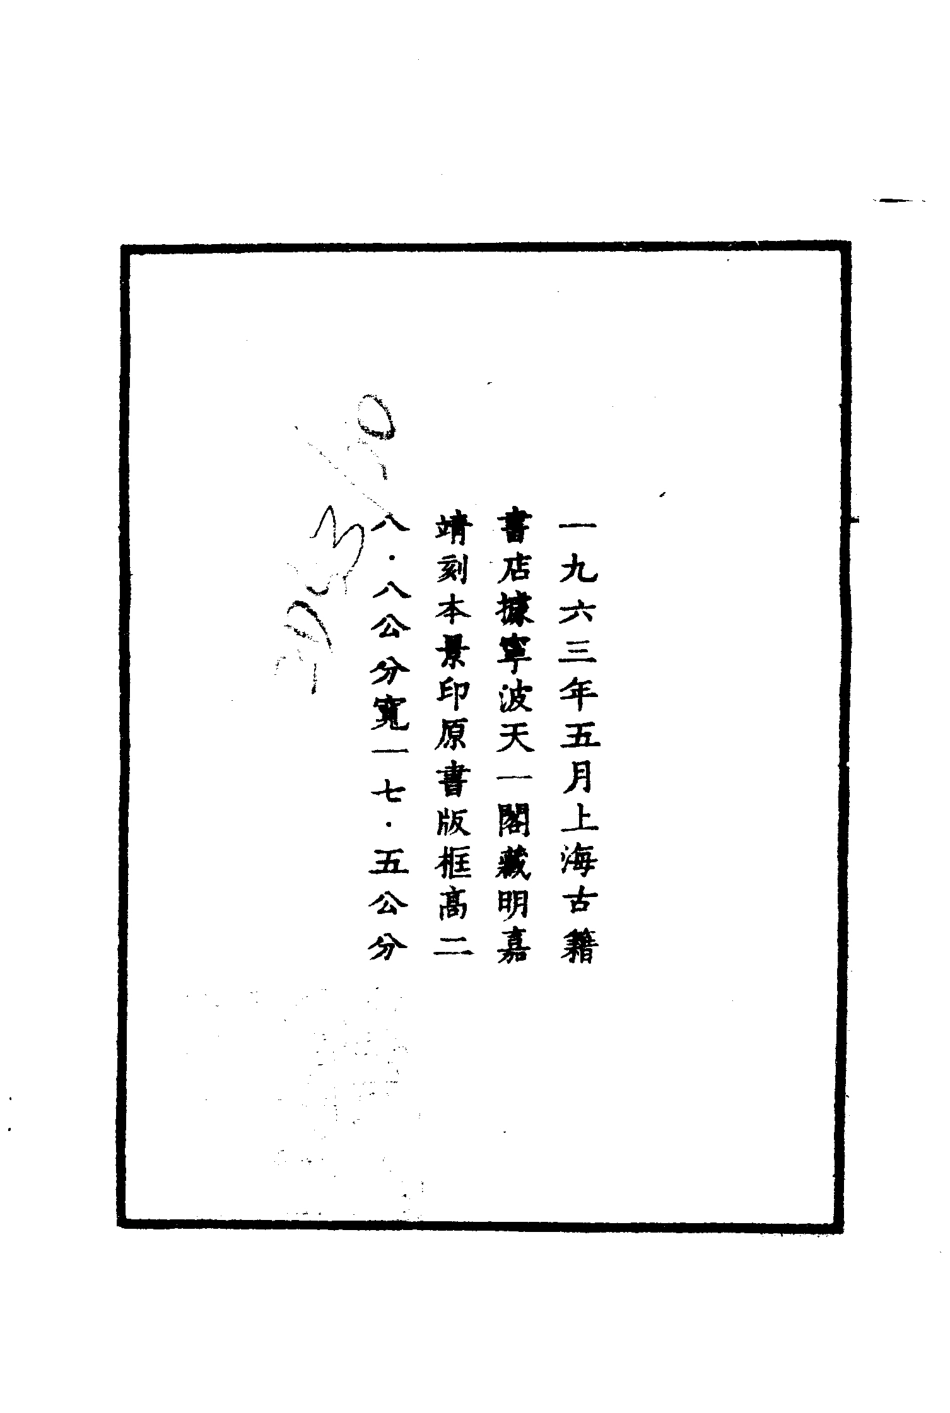 一九六三年五月上海古籍
書店據寧波天一閣藏明嘉
靖刻本景印原書版框高二
八·八公分寬一七·五公分